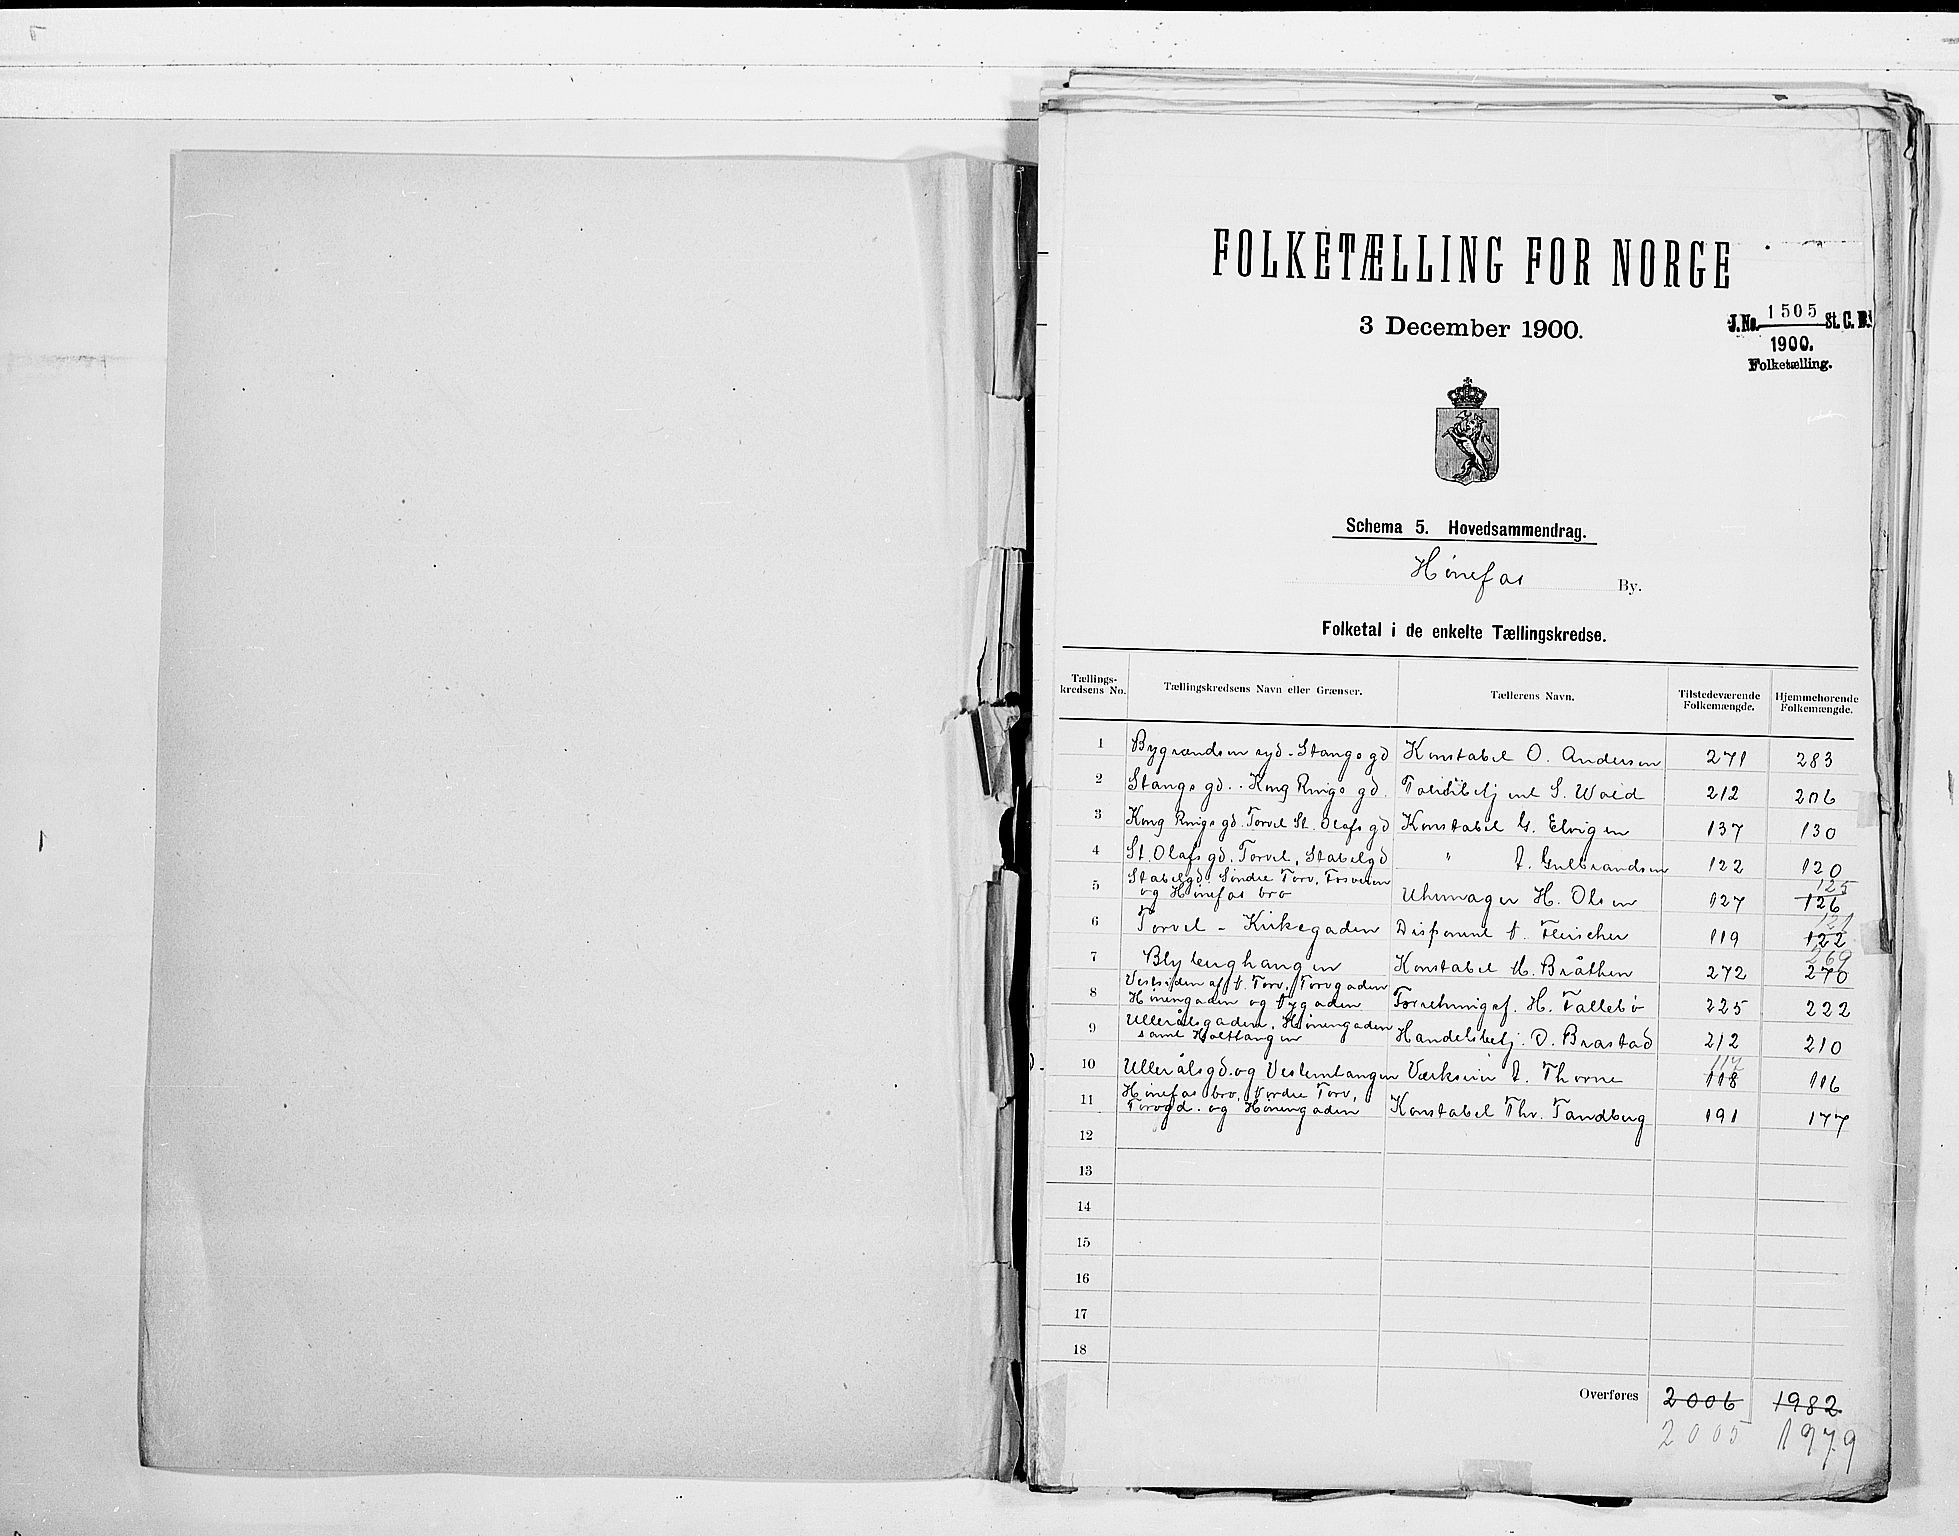 FOLKETÆLLING FOR NORGE
3 December 1900.
J.No. 1505 St. C. B.
1900.
Folketælling.
Schema 5. Hovedsammendrag.
Hønefos By.
Folketal i de enkelte Tællingskredse.
Tællings-kredsens No. Tællingskredsens Navn eller Grænser. Tællerens Navn. Tilstedeværende Folkemængde. Hjemmehørende Folkemængde.
1 Bygrændsen syd - Stangs gd Konstabel O. Andersen 271 283
2 Stangs gd. - Kong Rings gd. S. Wold 212 206
3 Kong Rings gd. Torvet St. Olafs gd Konstabel G. Elvigen 137 130
4 St. Olafs gd. Torvet, Stabelgd " A. Gulbrandsen 122 120
125
5 Stabelgd. Søndre Torv, Fosveien
og Hønefos bro Uhrmager H. Olsen 127 126
121
6 Torvet - Kirkegaden Disponent N. Fleischer 119 122
269
7 Blyberghaugen Konstabel M. Bråthen 272 270
8 Vestsiden af N. Torv, Torvgaden
Hønengaden og Nygaden Forretningsf. H. Follebø 225 222
9 Ullerålsgaden, Hønengaden
samt Holttangen Handelsbetj. O. Brastad 212 210
117
10 Ullerålsgd. og Vesterntangen Værkseier A. Thorne 118 116
11 Hønefos bro, Nordre Torv,
Torvgd. og Hønengaden Konstabel Thv. Tandberg 191 177
12
13
14
15
16
17
18
Overføres 2006 1982
2005 1979